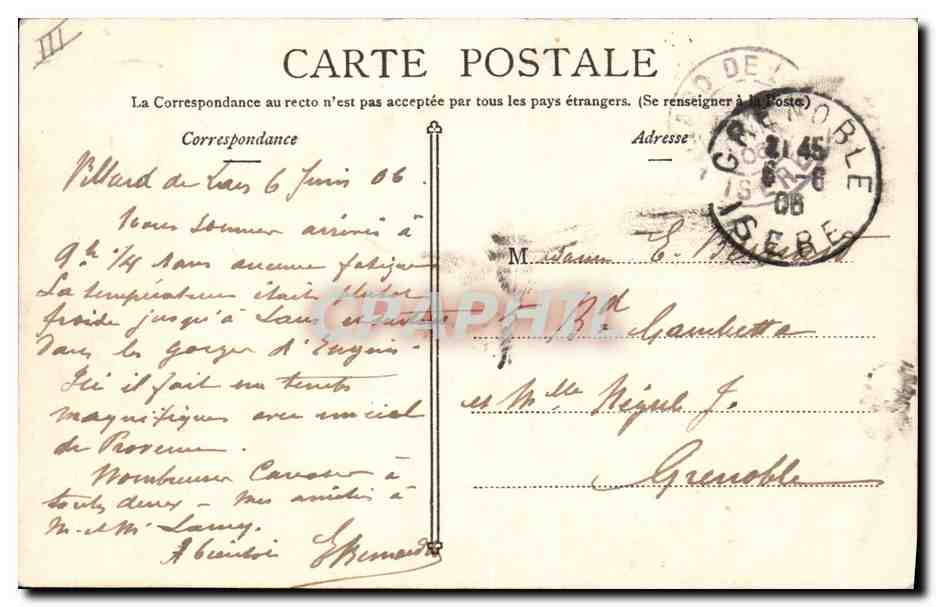 III
CARTE POSTALE
La Correspondance au recto n'est pas acceptée par tous les pays étrangers. (Se renseigner à la Poste.)
Correspondance
Villard de Lans 6 Juin 06.
Nous sommes arrivés à
9h 1/4 sans aucune fatigue
La température était plutôt
froide jusqu'à Lans et surtout
dans les gorges d'Engins.
Ici il fait un temps
magnifique avec un ciel
de Provence.
Nombreuses Caresses à
toutes deux - mes amitiés à
M. et Me Lamy.
A bientôt EBernard
Adresse
Madame E. Bernard
5 Bd Gambetta
et Melle Négul J.
Grenoble
GRENOBLE
21 45
6 -6
06
ISERE
RD DE L
ISERE
CRAPHIL